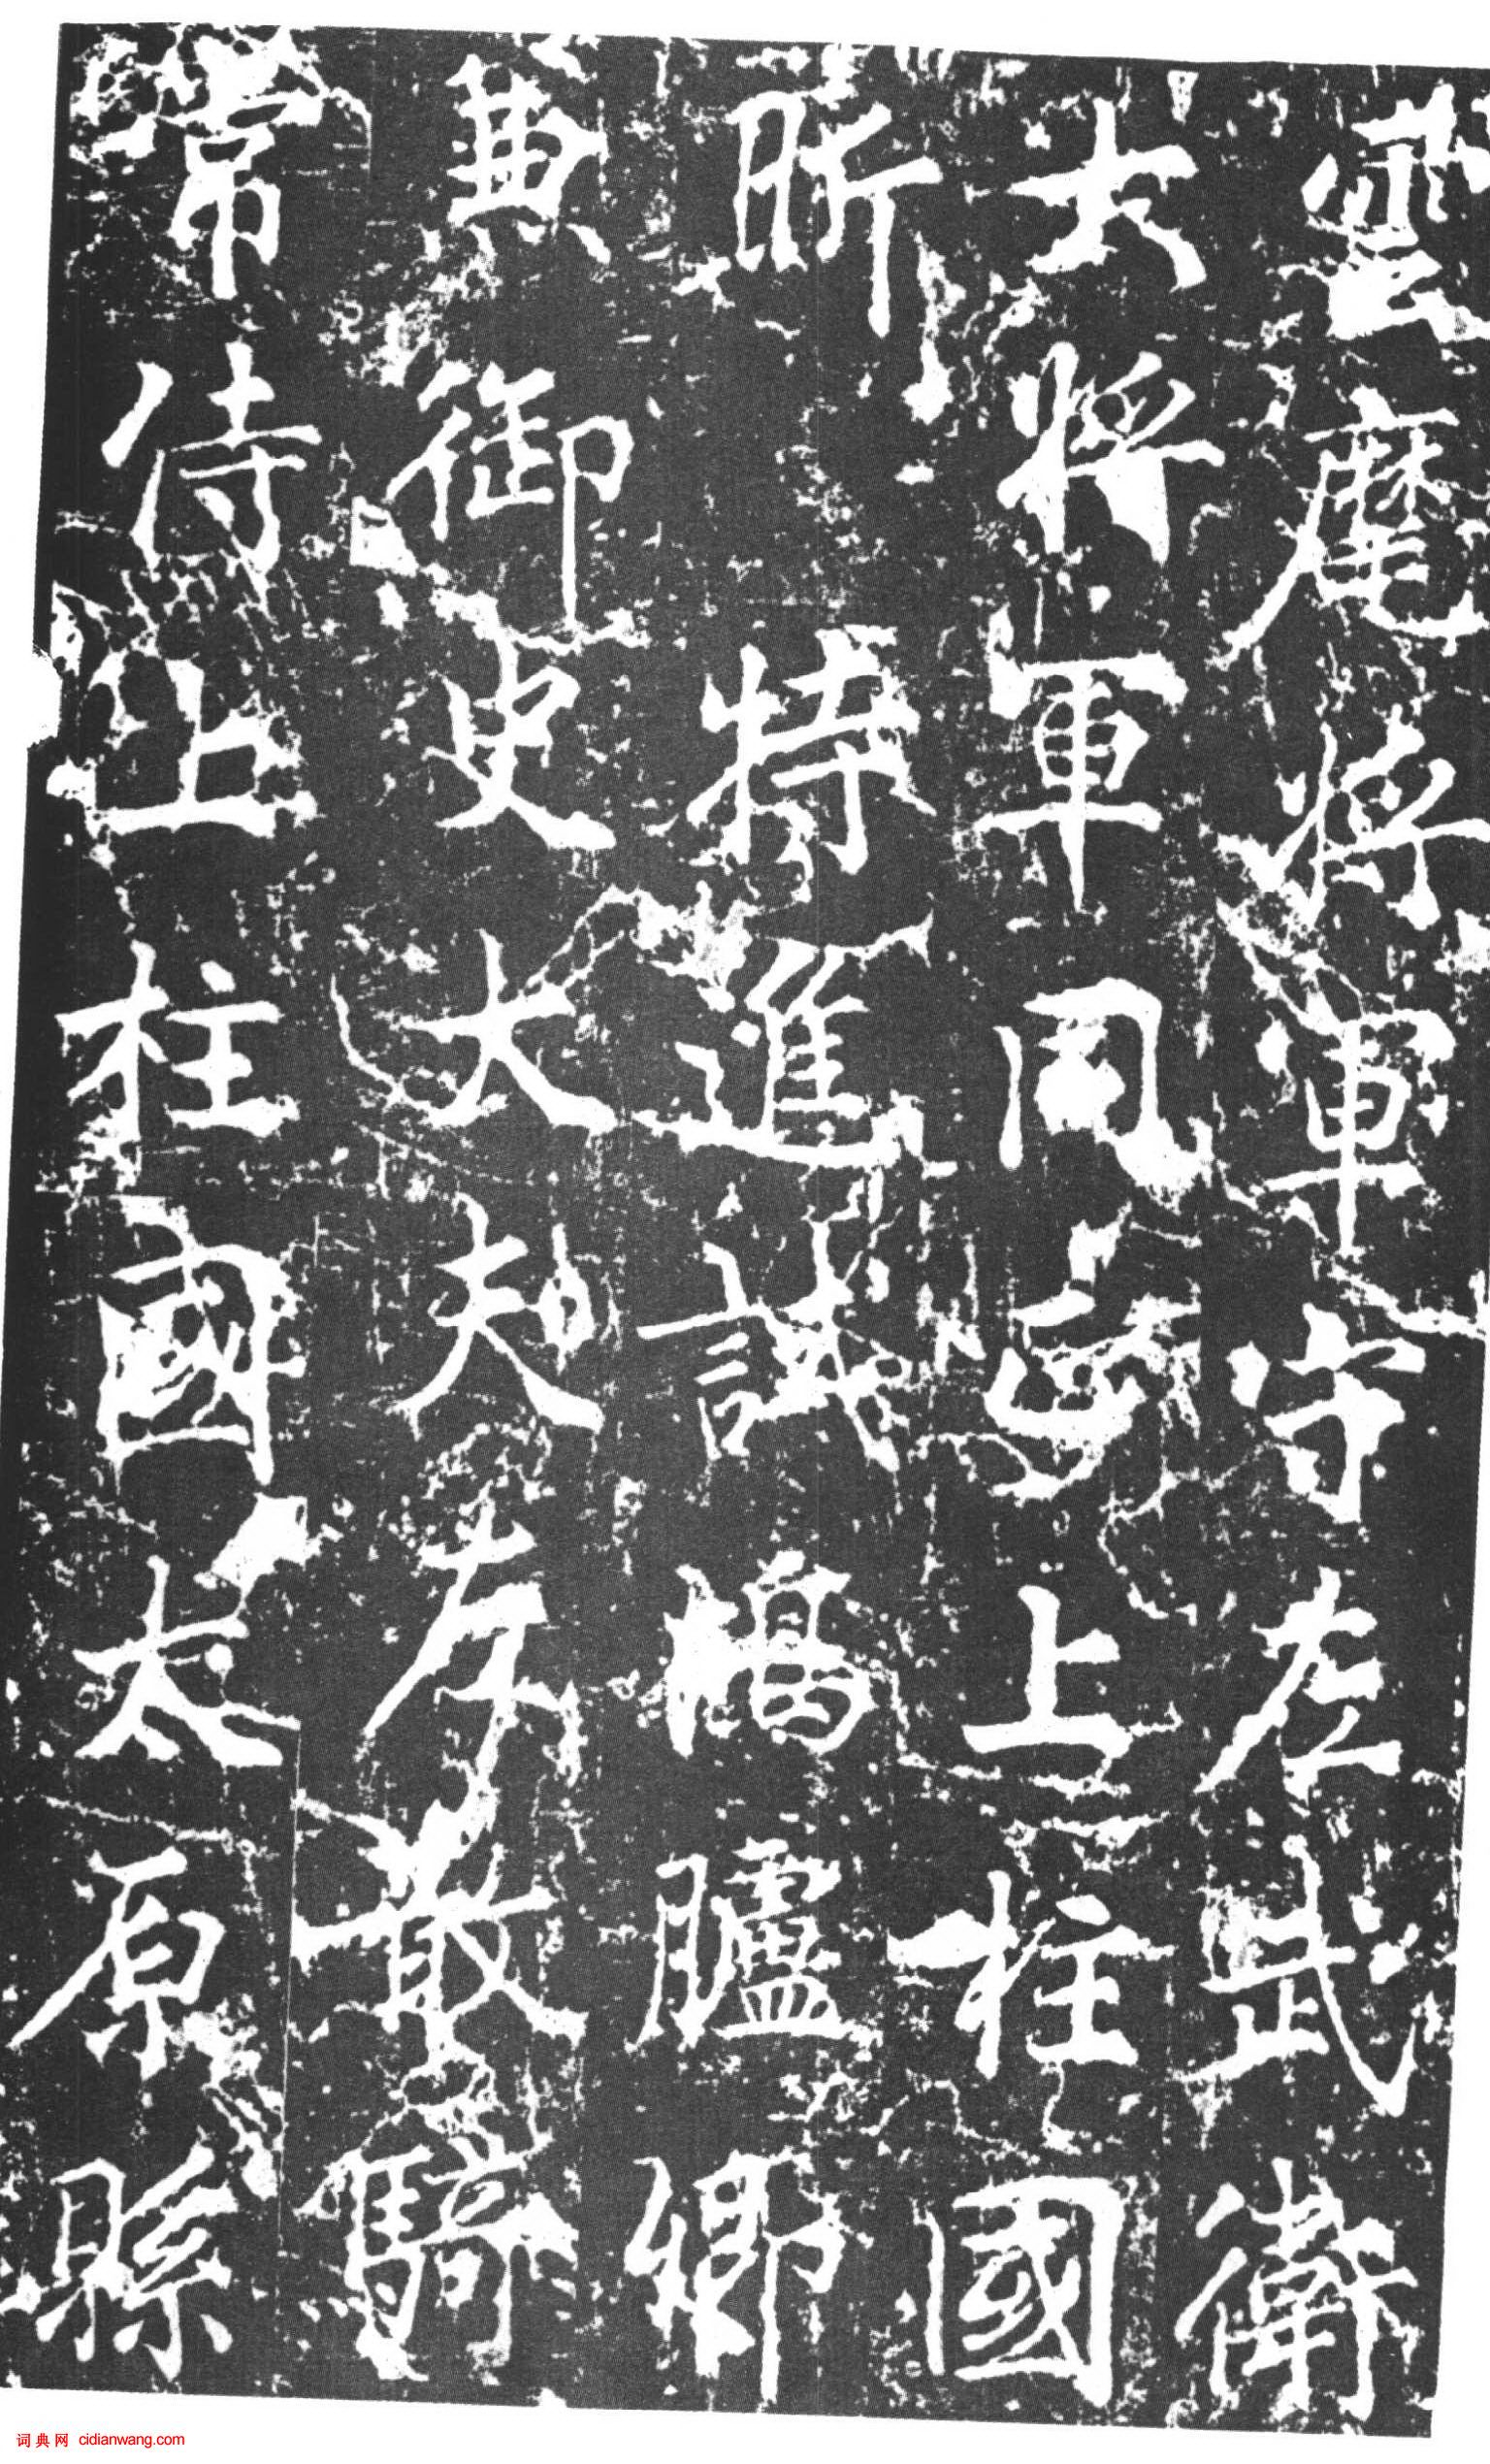 雲麾將軍守左武衛
大將軍同正上柱國
昕 特進試鴻臚卿
兼御史大夫散騎
常侍上柱國太原縣
词典网 cidianwang.com